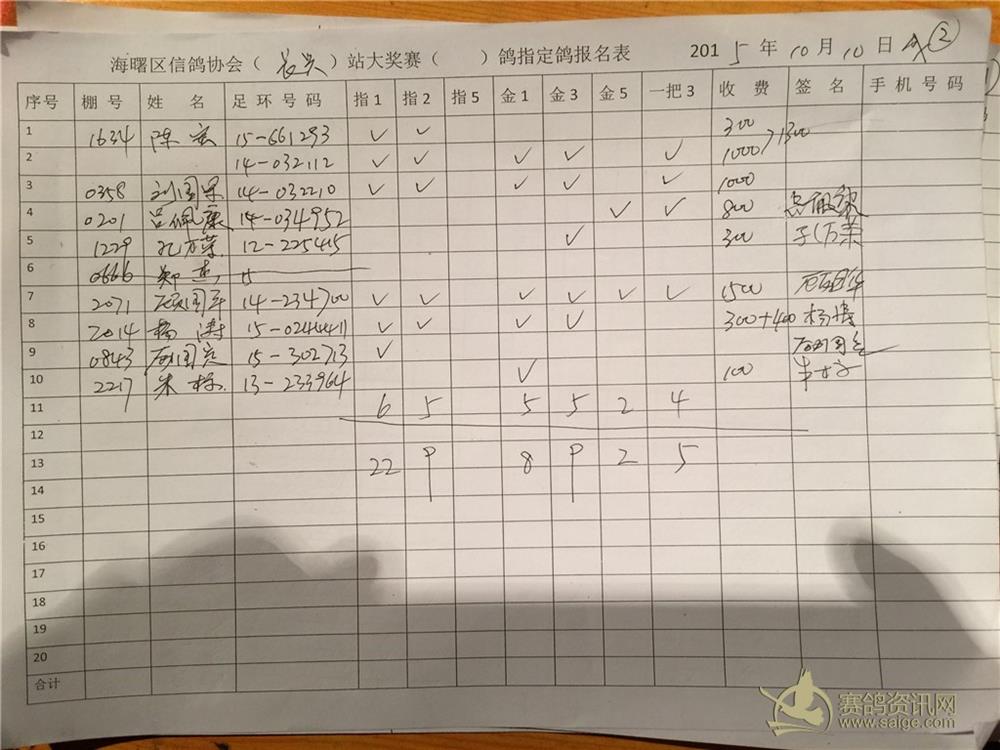 海曙区信鸽协会（长兴）站大奖赛（ ）鸽指定鸽报名表 2015年10月10日 ②
序号 棚号 姓名 足环号码 指1 指2 指5 金1 金3 金5 一把3 收费 签名 手机号码
1 1634 陈宏 15-661293 ✓ ✓ 300
2 14-032112 ✓ ✓ ✓ ✓ ✓ 1000 >1300
3 0358 刘国 14-032210 ✓ ✓ ✓ ✓ ✓ 1000
4 0201 吕佩康 14-034952 ✓ ✓ 800
5 1229 孔万荣 12-225415 ✓ 300 孔万荣
6 0666 郑
7 2071 顾国华 14-234700 ✓ ✓ ✓ ✓ ✓ ✓ 1500 顾国华
8 2014 杨涛 15-0244411 ✓ ✓ ✓ ✓ 300+400 杨涛
9 0843 国定 15-302713 ✓
10 2217 朱栋 13-233964 ✓ 100
11 6 5 5 5 2 4
12
13 22 9 8 9 2 5
14
15
16
17
18
19
20
合计
赛鸽资讯网
www.saige.com